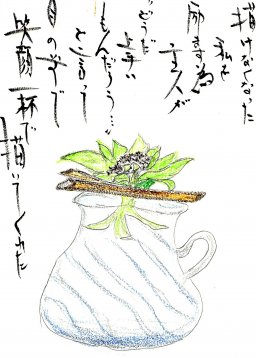 描けなくなった
私を
励ます為
主人が
"どうだ
上手い
もんだろう…"
と言って
目の前で
笑顔一杯で描いてくれた